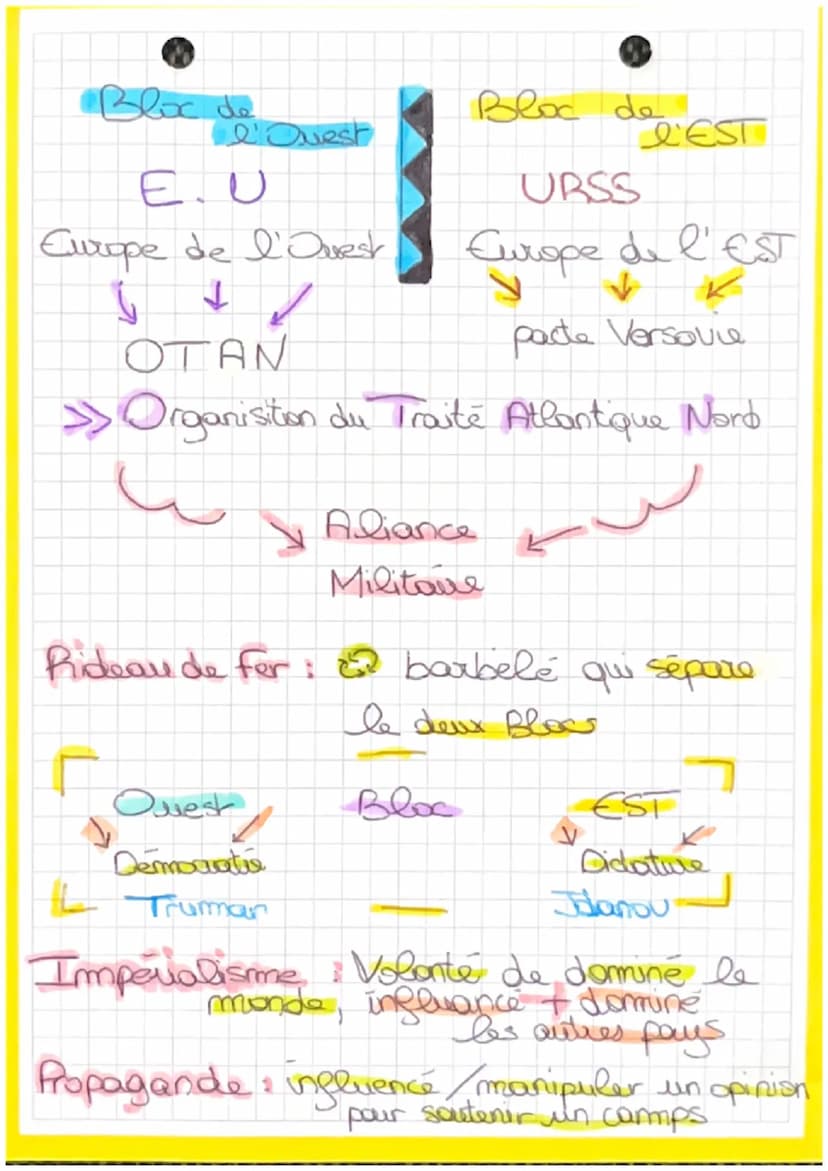 Bloc de
l'Ouest
Bloc de
l'EST
E.U
URSS
Europe de l'Ouest
Europe de l'EST
OTAN
pacte Versovie
>> Organisition du Traité Atlantique Nord
Aliance
Militaire
Rideau de fer : barbelé qui sépare
le deux Blocs
Ouest Bloc EST
Démocratie Didature
Truman Jdanov
Impérialisme : Volonté de dominé le
monde, influancé + dominé
les autres pays
Propagande : influencé / manipuler un opinion
pour soutenir un camps